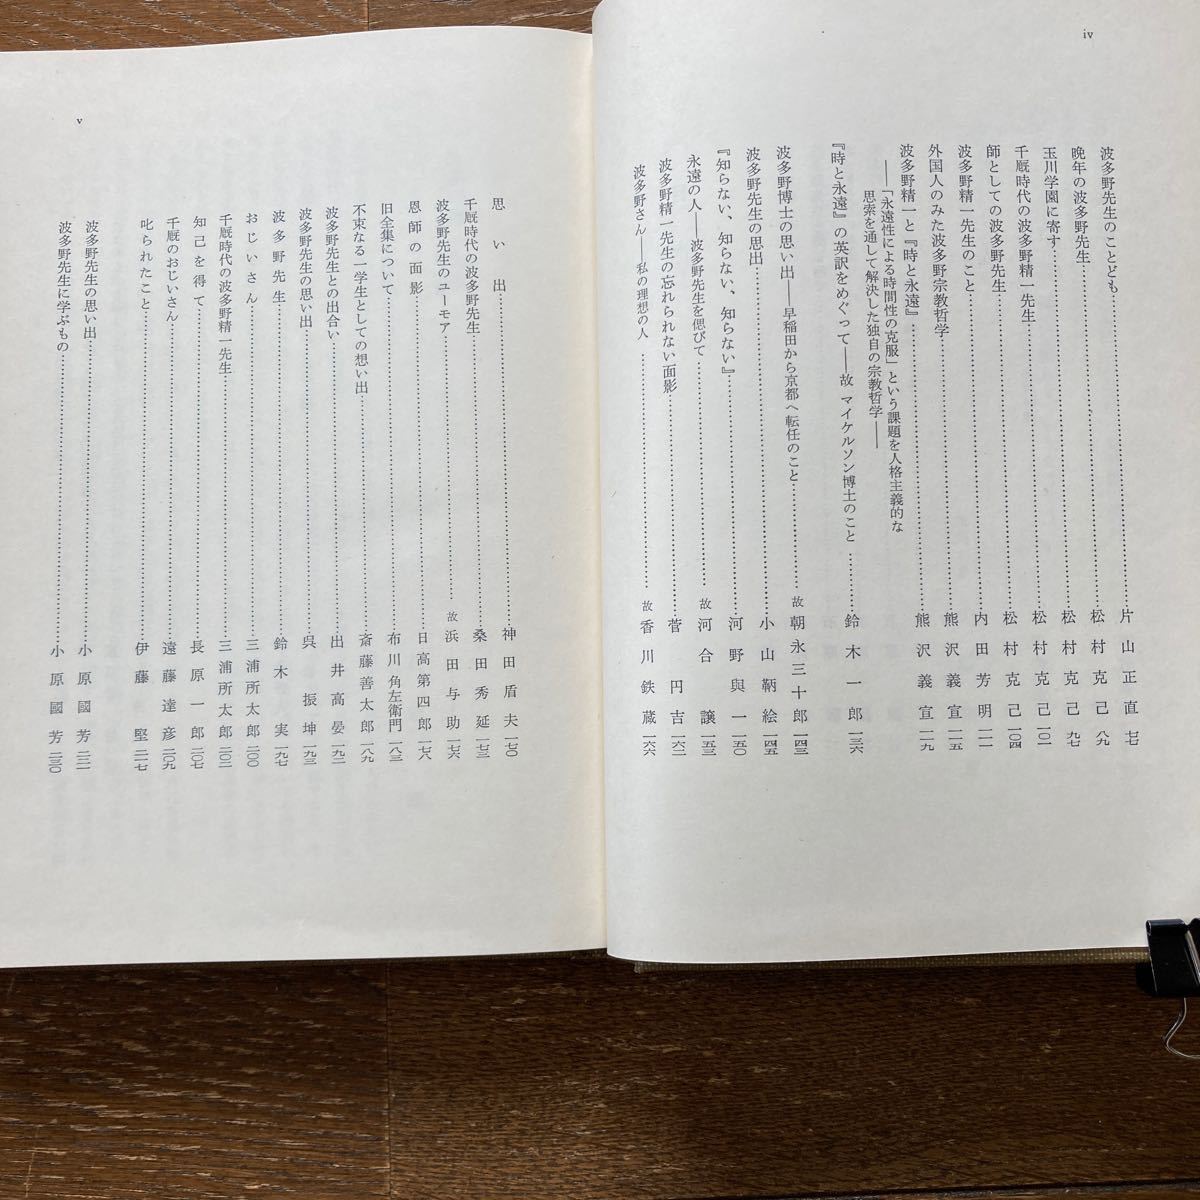 iv
波多野先生のことども……片山正直 七七
晩年の波多野先生……松村克己 八九
玉川学園に寄す……松村克己 九七
千厩時代の波多野精一先生……松村克己 一〇一
師としての波多野先生……松村克己 一〇四
波多野精一先生のこと……内田芳明 一一一
外国人のみた波多野宗教哲学……熊沢義宣 一一五
波多野精一と『時と永遠』……熊沢義宣 一一九
――「永遠性による時間性の克服」という課題を人格主義的な
思索を通して解決した独自の宗教哲学――
『時と永遠』の英訳をめぐって――故 マイケルソン博士のこと……鈴木一郎 一三六
波多野博士の思い出――早稲田から京都へ転任のこと……故 朝永三十郎 一四三
波多野先生の思出……小山鞆絵 一四五
『知らない、知らない、知らない』……河野與一 一五〇
永遠の人――波多野先生を偲びて……故 河合譲 一五三
波多野精一先生の忘れられない面影……菅円吉 一六二
波多野さん――私の理想の人……故 香川鉄蔵 一六六
v
思い出……神田盾夫 一七〇
千厩時代の波多野先生……桑田秀延 一七三
波多野先生のユーモア……故 浜田与助 一七六
恩師の面影……日高第四郎 一七八
旧全集について……布川角左衛門 一八三
不束なる一学生としての想い出……斎藤善太郎 一八九
波多野先生との出合い……出井高晏 一九二
波多野先生の思い出……呉振坤 一九三
波多野先生……鈴木実 一九七
おじいさん……三浦所太郎 二〇〇
千厩時代の波多野精一先生……三浦所太郎 二〇二
知己を得て……長原一郎 二〇七
千厩のおじいさん……遠藤達彦 二〇九
叱られたこと……伊藤堅 二一七
波多野先生の思い出……小原國芳 二二一
波多野先生に学ぶもの……小原國芳 二三〇